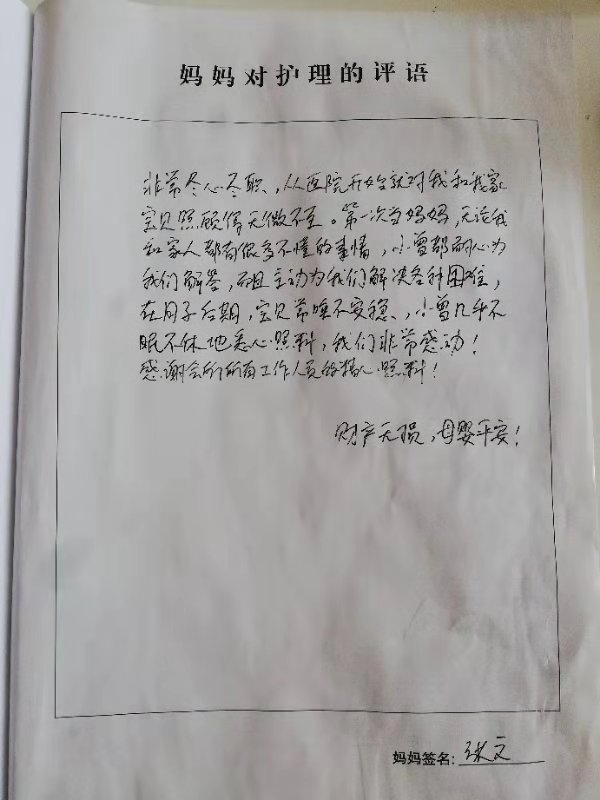 妈妈对护理的评语
非常尽心尽职、从医院开始就对我和我家
宝贝照顾得无微不至。第一次当妈妈,无论我
和家人都有很多不懂的事情,小曾都耐心为
我们解答,而且主动为我们解决各种困难,
在月子后期,宝贝常睡不安稳、,小曾几乎不
眠不休地悉心照料,我们非常感动!
感谢会所所有工作人员的精心照料!
财产无损,母婴平安!
妈妈签名:张文